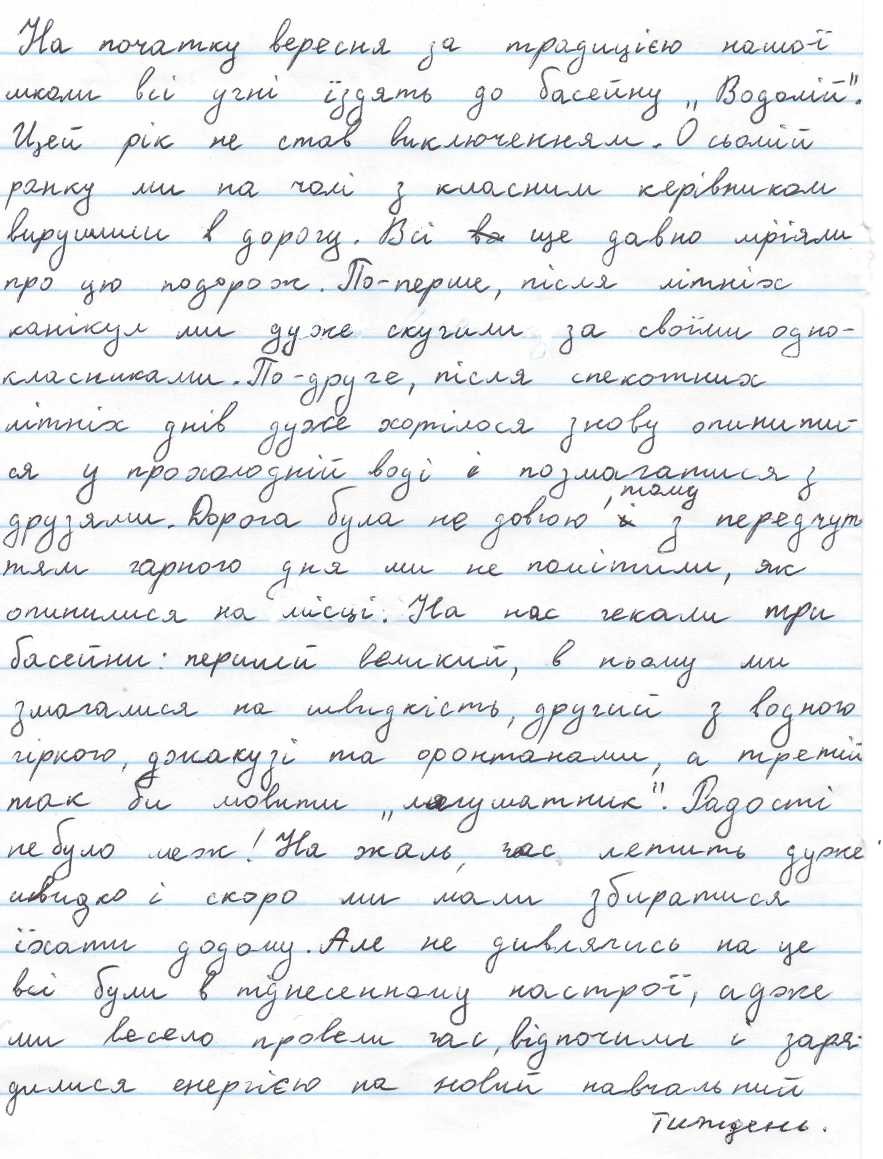 На початку вересня за традицією нашої
школи всі учні їздять до басейну „Водолій".
Цей рік не став виключенням. О сьомій
ранку ми на чолі з класним керівником
вирушили в дорогу. Всі ще давно мріяли
про цю подорож. По-перше, після літніх
канікул ми дуже скучили за своїми одно-
класниками. По-друге, після спекотних
літніх днів дуже хотілося знову опинити-
ся у прохолодній воді і позмагатися з
друзями. Дорога була не довгою, тому з передчут
тям гарного дня ми не помітили, як
опинилися на місці. На нас чекали три
басейни: перший великий, в ньому ми
змагалися на швидкість, другий з водного
гіркого, джакузі та фонтанами, а третій
так би мовити „лягуматник". Радості
не було меж! На жаль, час летить дуже
швидко і скоро ми мали збиратися
їхати додому. Але не дивлячись на це
всі були в піднесенному настрої, адже
ми весело провели час, відпочили і заря-
дилися енергією на новий навчальний
тиждень.